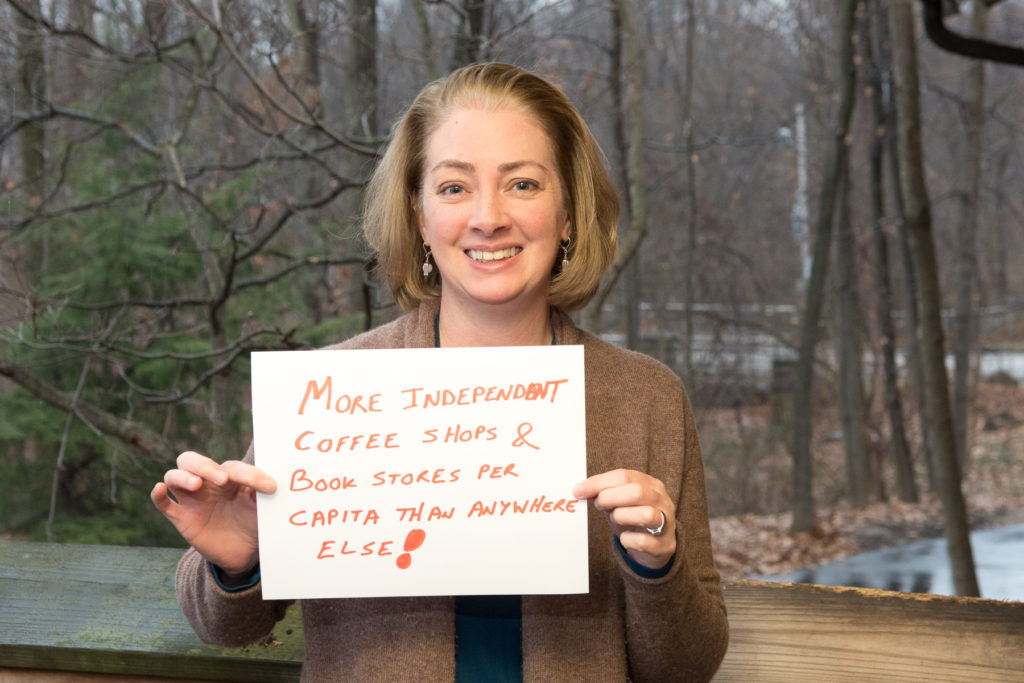 MORE INDEPENDENT
COFFEE SHOPS &
BOOK STORES PER
CAPITA THAN ANYWHERE
ELSE!